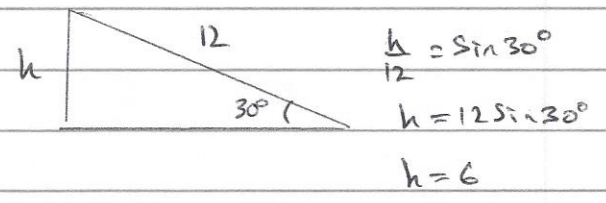 h
12
30°
h/12 = Sin 30°
h = 12 Sin 30°
h = 6